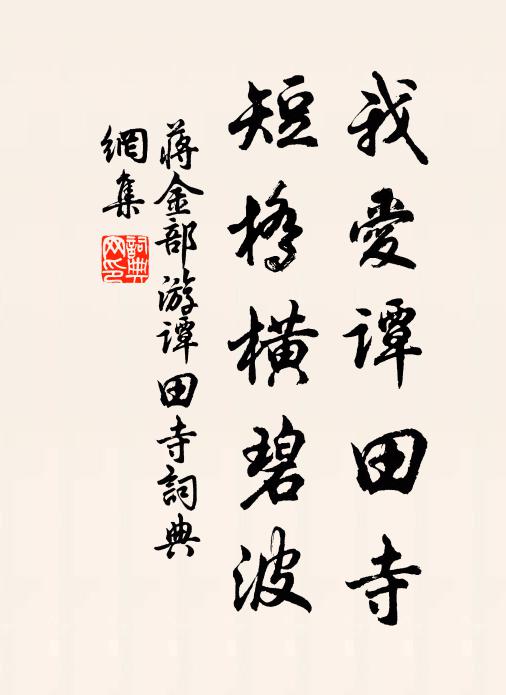 我愛谭田寺
短橋橫碧波
蔣金部游谭田寺詞典
網集
詞典网印